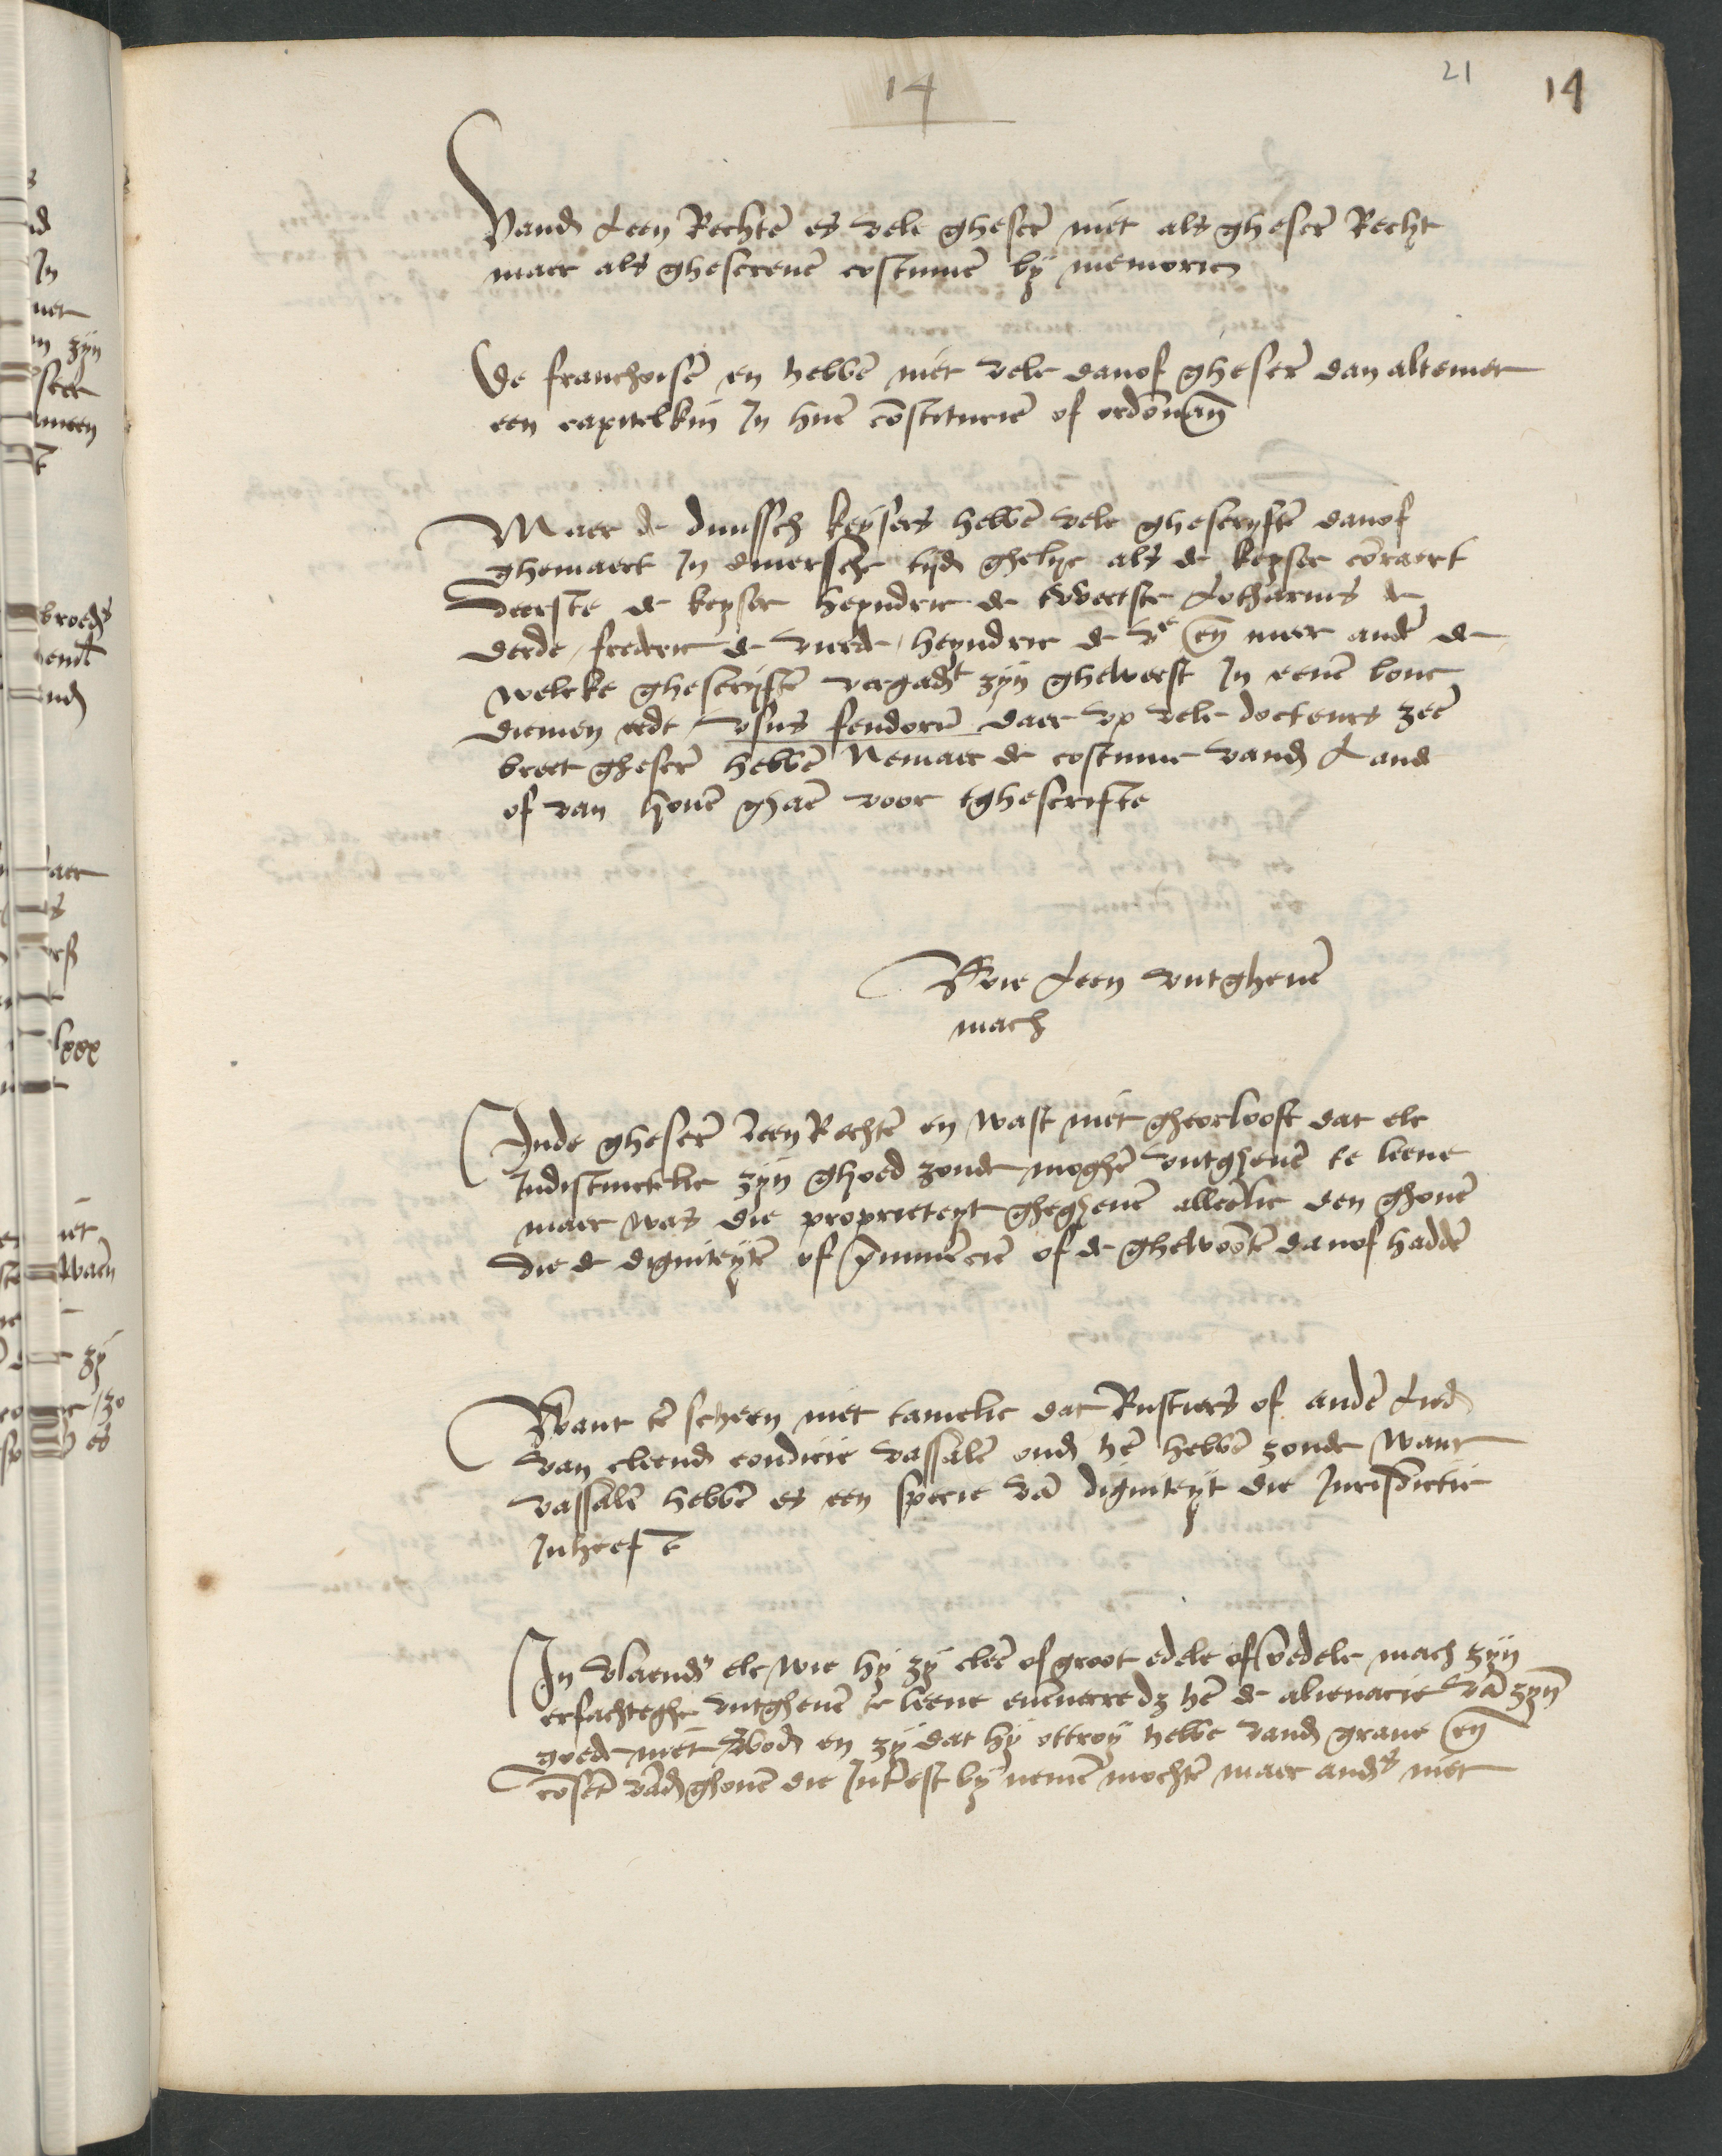 14
21
14
Vand Leen Rechtē es vele ghescrē niet als ghescrē Recht
maer als ghescreuē costumē bÿ memorie
De franchoisē en hebbē niet vele danof ghescrē dan altemet
een capitelkin In huē cōstitucië of ordōnān
Maer de duutsch keÿsers hebbē vele ghescryftē danof
ghemaect In diuerssche tijd ghelyc als de keyser cōraert
deerste de keyser heyndric de tweetste Lotharius de
derde / frederic de vierde / heyndric de ve en meer andē de
welcke ghescryftē vergadt zyn gheweest In eenē bouc
diemen eedt vsus feudorū daer vp vele docteurs zeē
breet ghescrē hebbē Nemaer de costume vand Lande
of van houē ghaē voor tghescrifte
Wie Leen vutgheuē
mach
Inde ghescrē leen Rechtē en wast niet gheorlooft dat elc
Indistinctelic zyn ghoed zoude moghē vutgheuē te leene
maer was die proprieteyt ghegheuē alleēlic den ghonē
die de digniteytē of p̄eminēciē of de ghewoōte danof haddē
Want tē scheen niet tamelic dat Rustiers of andē Lied
van cleend condicie vassalē ond hē hebbē zoude want
vassalē hebbē es een specie vā digniteyt die Jurisdictie
Inheeft
In vlaendr elc wie hÿ zÿ cleē of groot edele of ōedele mach zyn
erfachteghe vutgheuē te leene euēuerre dz hē de alienacie vā zynē
goede niet vboden en zÿ dat hÿ ottroy hebbe vand graue en
cōsēt vād ghonē die Intest by nemē mochtē maer andrs niet